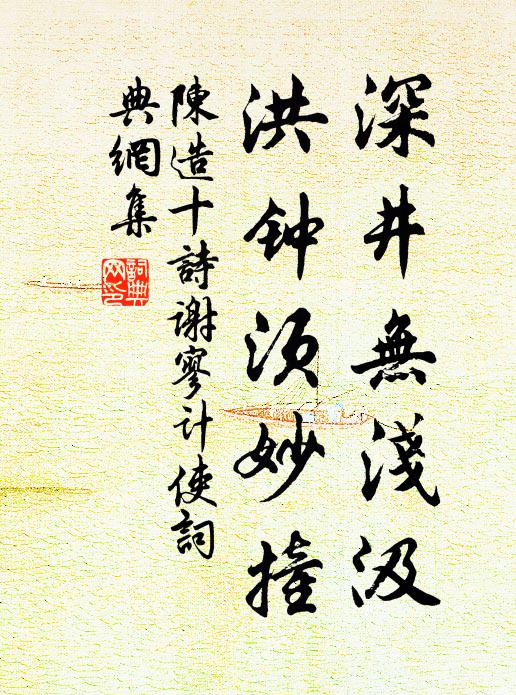 深井無淺汲
洪钟须妙撞
陳造十詩谢寥计使詞
典網集
詞典网印